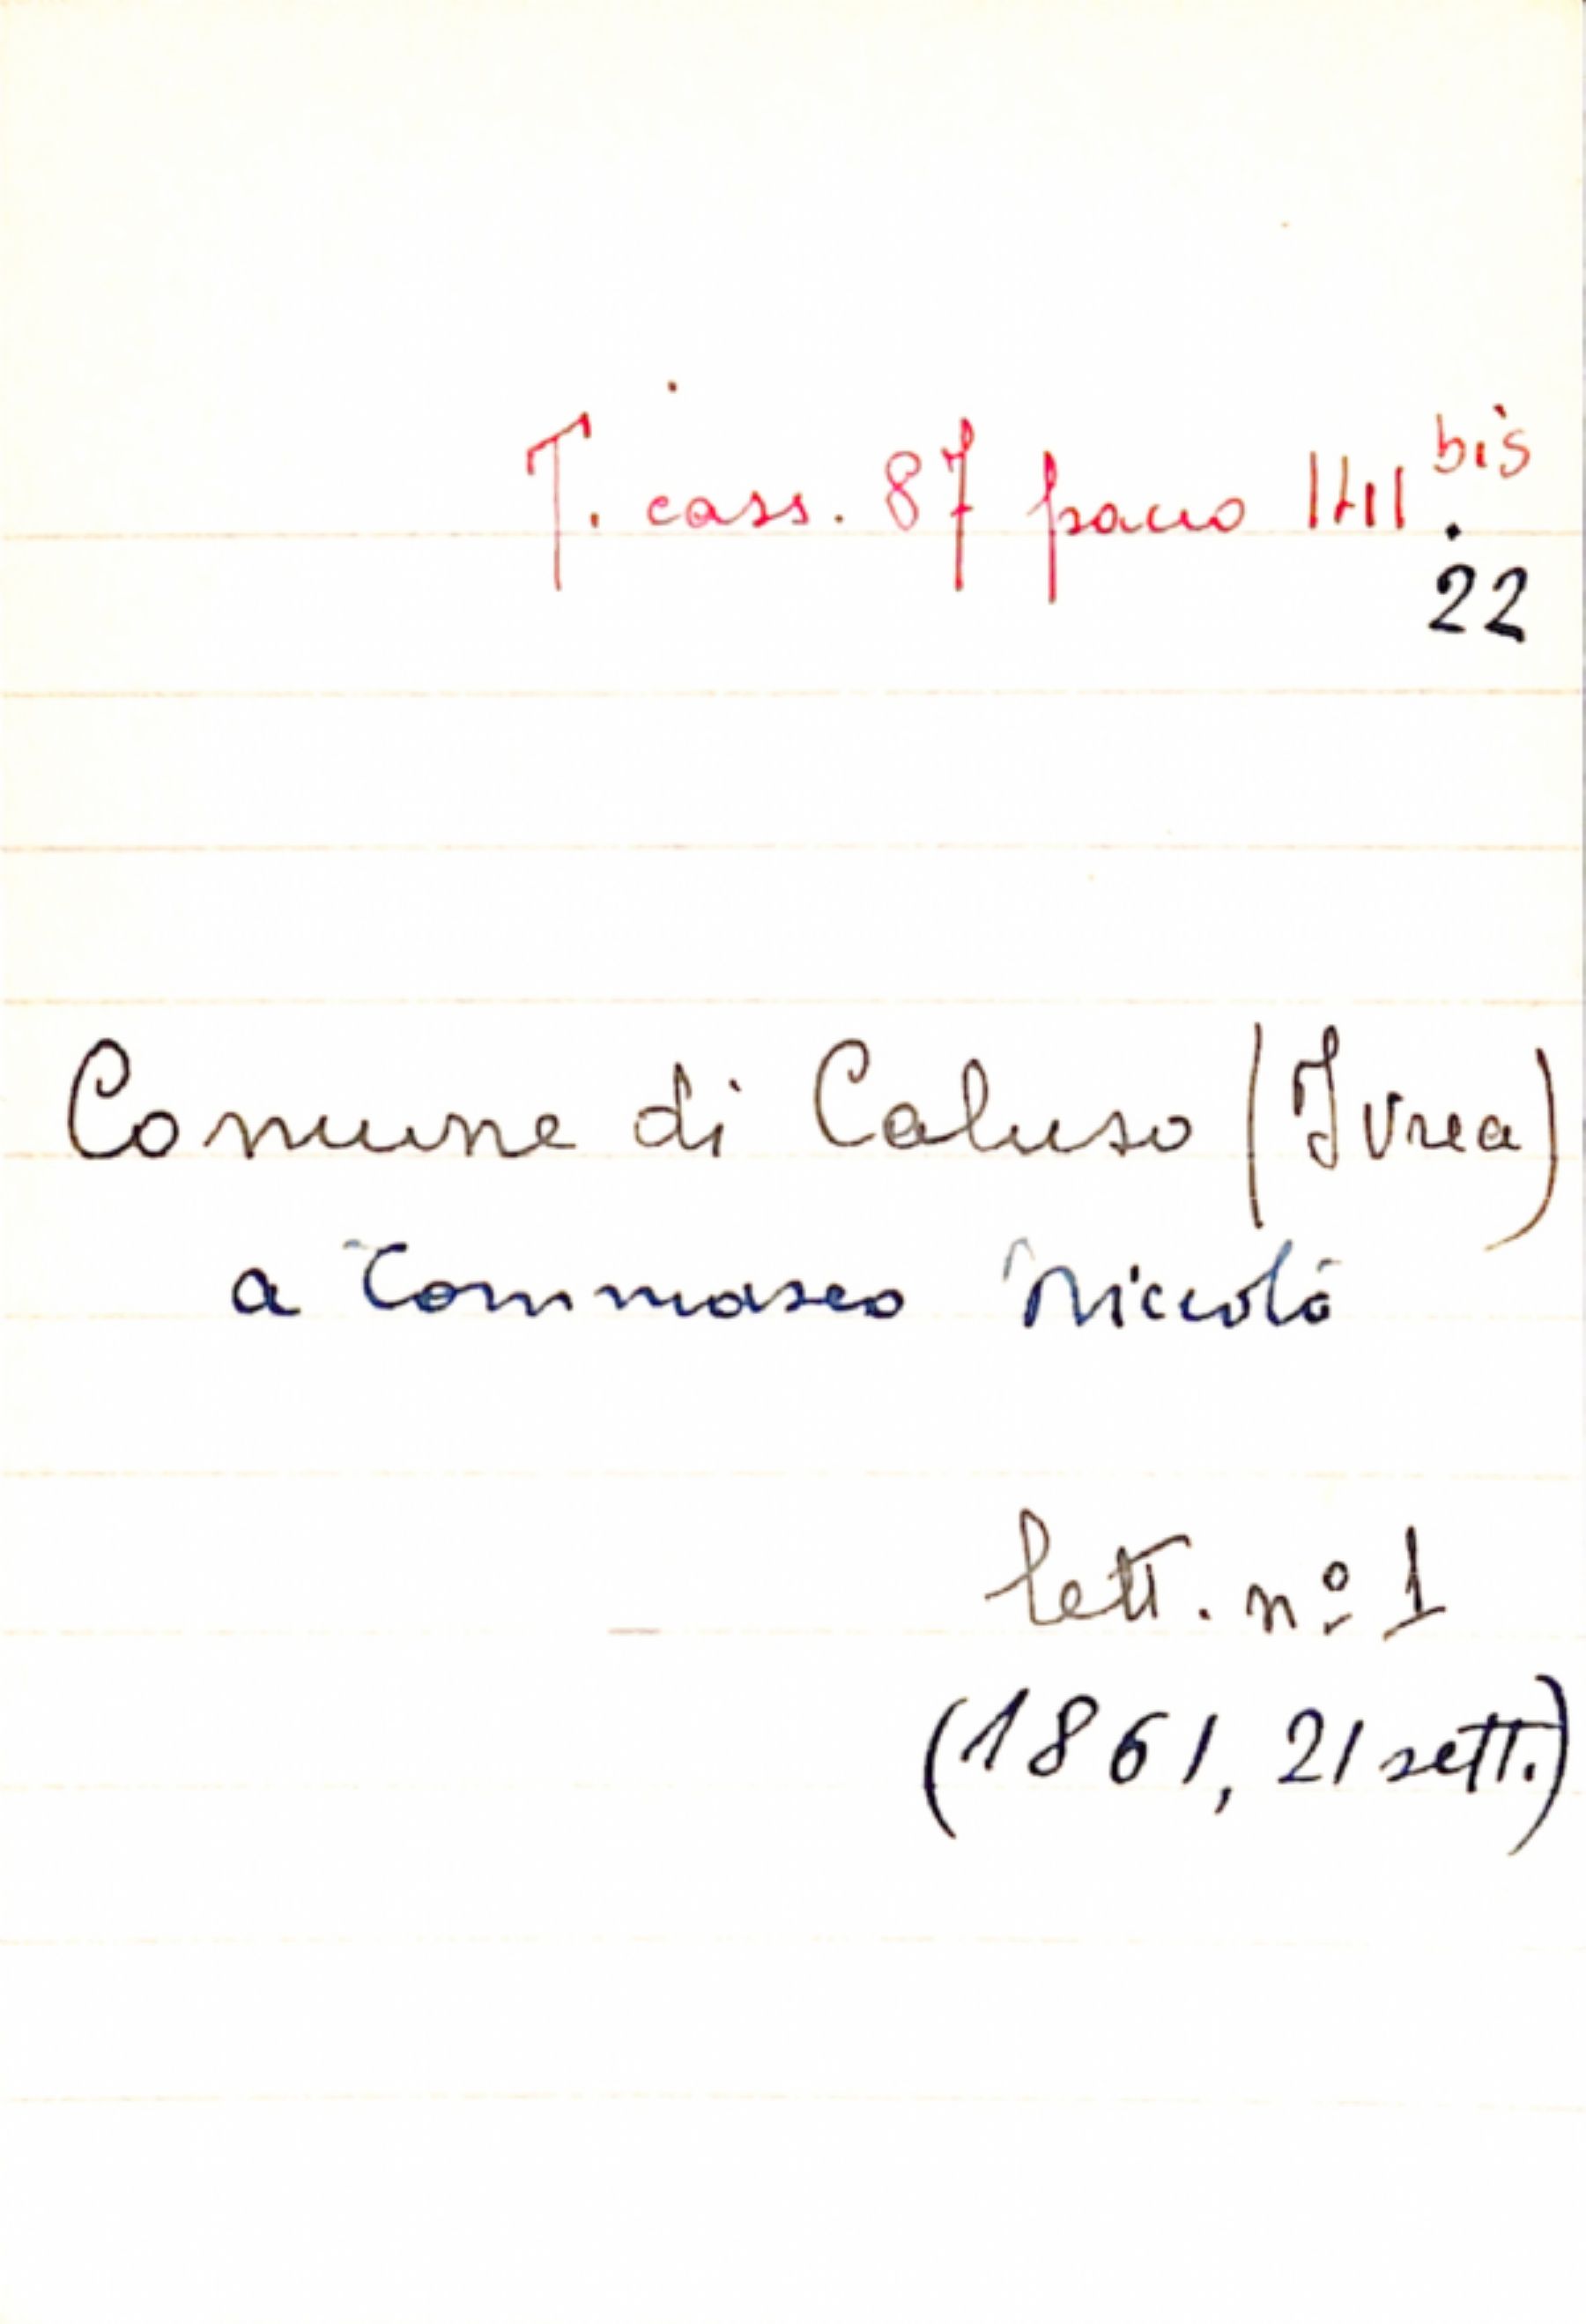 T. cass. 87 pacco III bis.
22
Comune di Caluso (Ivrea)
a Tommaseo Niccolò
lett. nº 1
(1861, 21 sett.)